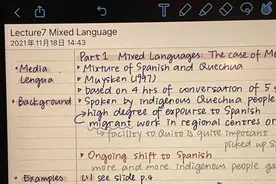 Lecture7 Mixed Language
2021年11月18日 14:43
Part 1 Mixed Languages: The case of Me
• Media Lengua
• Mixture of Spanish and Quechua
• Muysken (1997)
• based on 4 hrs of conversation of 5 s
• Background
• Spoken by indigenous Quechua people
high degree of expourse to Spanish
migrant work in regional centres or
facility to Quito is quite impotant
picked up S
• Ongoing shift to Spanish
more and more indigenous people ga
• Examples
(1) see slide p.4